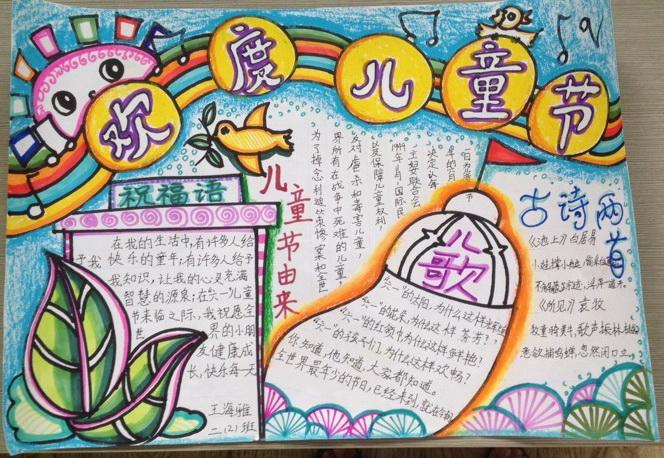 欢度儿童节
祝福语
在我的生活中,有许多人给
予我快乐的童年;有许多人给予
我知识,让我的心灵充满
智慧的源泉;在六一儿童
节来临之际,我祝愿全
世界的小朋
友健康成
长,快乐每一天
王海雅
二(2)班
儿童节由来
为了悼念利迪策惨案和全世
界所有在战争中死难的儿童,
反对虐杀和毒害儿童,
以及保障儿童权利,
1949年11月,国际民
主妇联合会
决定以每年
的六月
一日为
节
儿歌
“六一”的太阳,为什么这样
“六一”的花朵,为什么这样芬芳?
“六一”的红领巾为什么这样鲜艳?
“六一”的孩子们,为什么这样欢畅?
你知道,他知道,大家都知道。
全世界最年少的节日,已经来到,
古诗两首
《池上》白居易
小娃撑小艇,偷采白
不解藏踪迹,浮萍一道开。
《所见》袁牧
牧童骑黄牛,歌声振林樾
意欲捕鸣蝉,忽然闭口立。